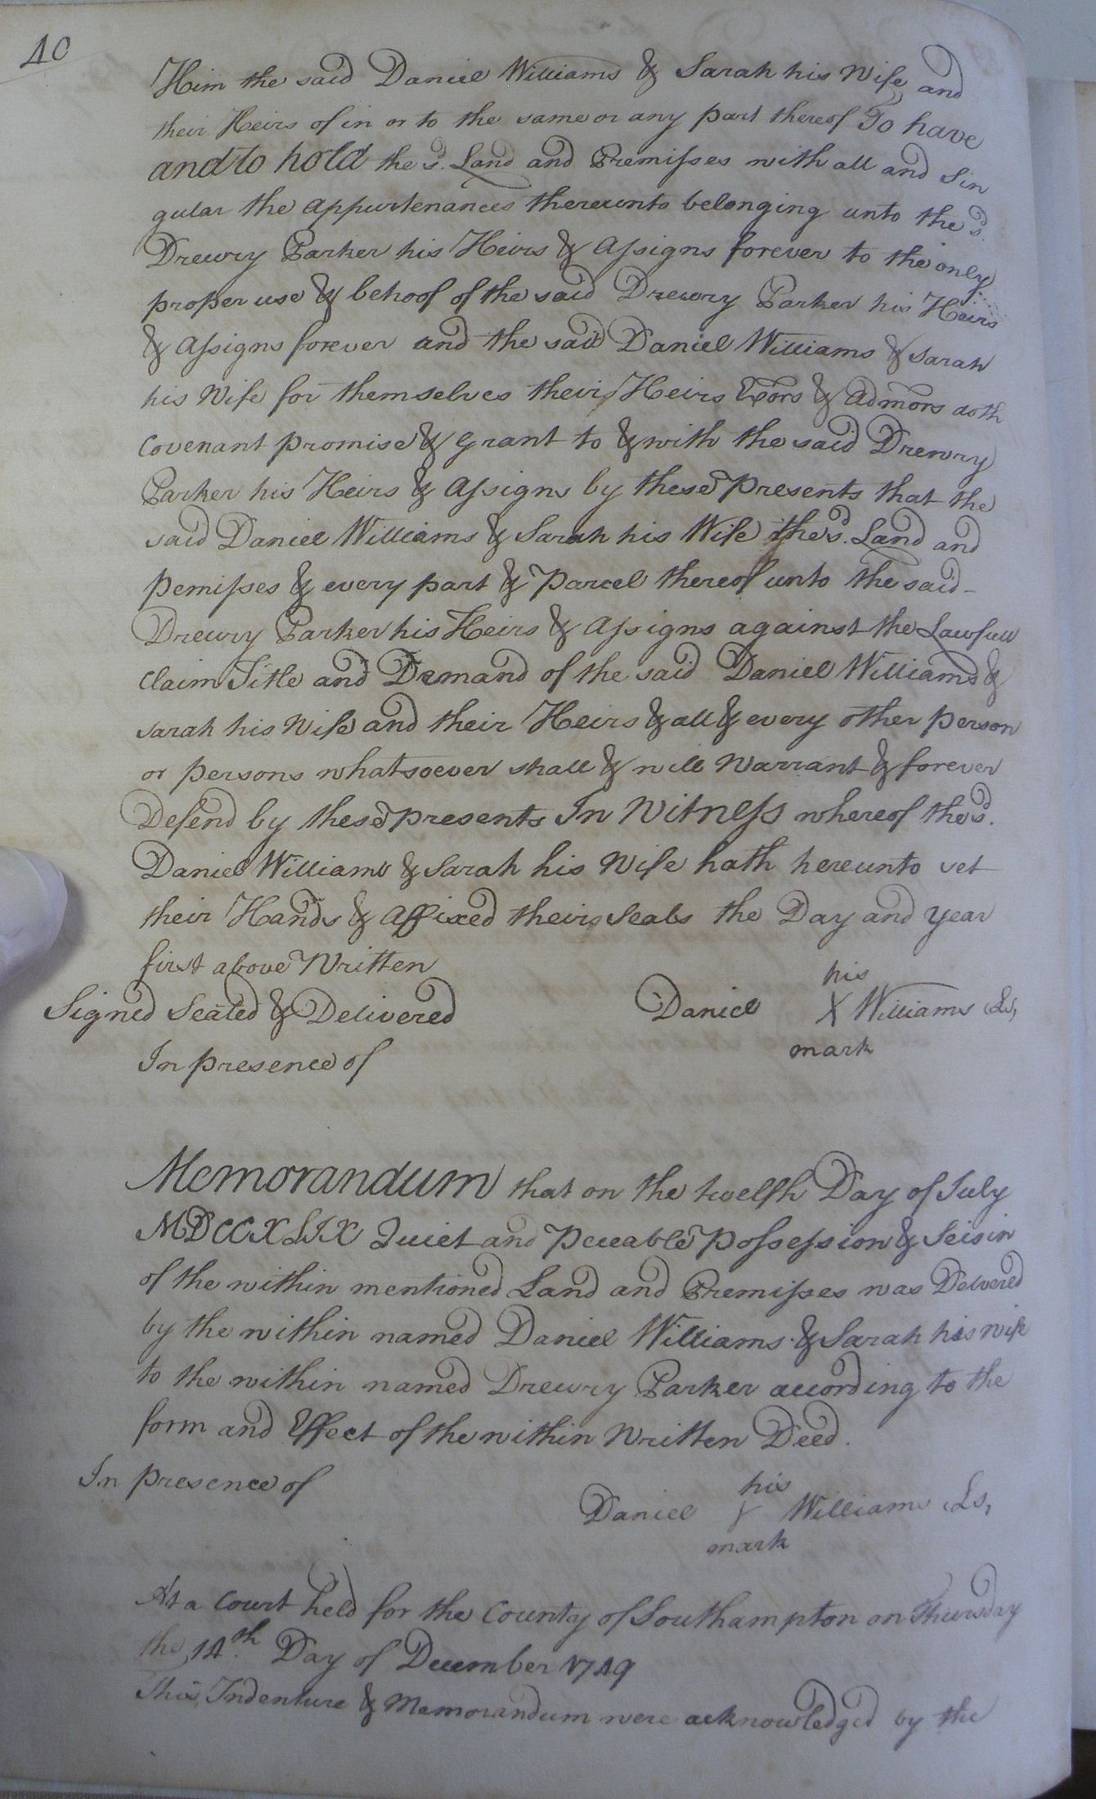 40
Him the said Daniel Williams & Sarah his Wife and
their Heirs of in or to the same or any part thereof To have
and to hold the sd. Land and Premisses with all and Sin
gular the appurtenances thereunto belonging unto the sd.
Drewry Parker his Heirs & Assigns forever to the only
proper use & behoof of the said Drewry Parker his Heirs
& Assigns forever and the said Daniel Williams & Sarah
his Wife for themselves their Heirs Exors & Admors doth
Covenant promise & grant to & with the said Drewry
Parker his Heirs & Assigns by these presents that the
said Daniel Williams & Sarah his Wife the sd. Land and
pemisses & every part & Parcel thereof unto the said
Drewry Parker his Heirs & Assigns against the Lawfull
Claim Title and Demand of the said Daniel Williams &
Sarah his Wife and their Heirs & all & every other person
or persons whatsoever shall & will Warrant & forever
Defend by these presents In Witness whereof the sd.
Daniel Williams & Sarah his Wife hath hereunto set
their Hands & Affixed their Seals the Day and year
first above Written
his
Signed Sealed & Delivered Daniel X Williams Ls,
In presence of mark
Memorandum that on the twelfth Day of July
MDCCXLIX Quiet and Peceable Possession & Seisin
of the within mentioned Land and Premisses was Delvered
by the within named Daniel Williams & Sarah his wife
to the within named Drewry Parker according to the
form and Effect of the within Written Deed.
In presence of his
Daniel X Williams Ls,
mark
At a Court held for the County of Southampton on Thursday
the 14th. Day of December 1749
This Indenture & Memorandum were acknowledged by the